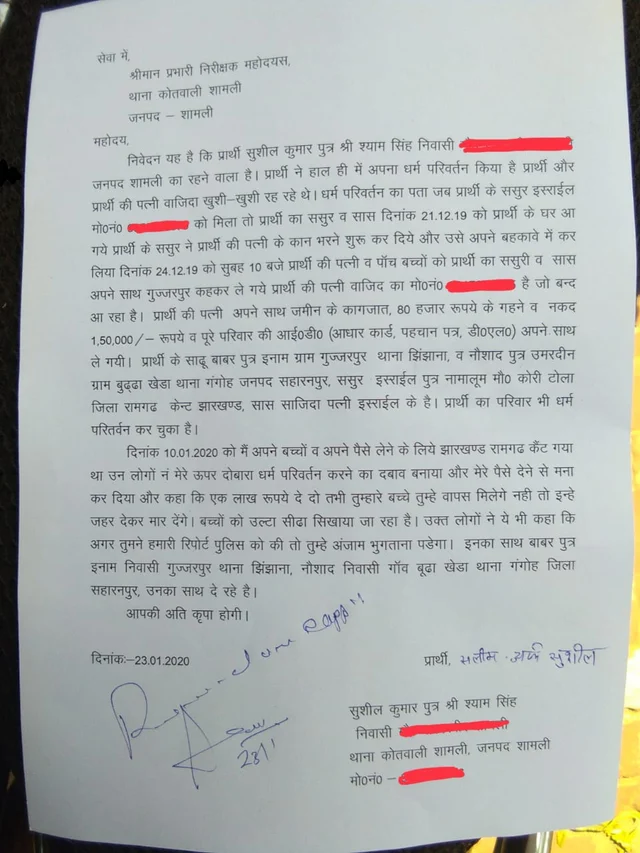 सेवा में,
श्रीमान प्रभारी निरीक्षक महोदयस,
थाना कोतवाली शामली
जनपद – शामली
महोदय,
निवेदन यह है कि प्रार्थी सुशील कुमार पुत्र श्री श्याम सिंह निवासी
जनपद शामली का रहने वाला है। प्रार्थी ने हाल ही में अपना धर्म परिवर्तन किया है प्रार्थी और
प्रार्थी की पत्नी वाजिदा खुशी-खुशी रह रहे थे। धर्म परिवर्तन का पता जब प्रार्थी के ससुर इस्राईल
मो0नं0 को मिला तो प्रार्थी का ससुर व सास दिनांक 21.12.19 को प्रार्थी के घर आ
गये प्रार्थी के ससुर ने प्रार्थी की पत्नी के कान भरने शुरू कर दिये और उसे अपने बहकावे में कर
लिया दिनांक 24.12.19 को सुबह 10 बजे प्रार्थी की पत्नी व पॉच बच्चों को प्रार्थी का ससुरी व सास
अपने साथ गुज्जरपुर कहकर ले गये प्रार्थी की पत्नी वाजिद का मो0नं0 है जो बन्द
आ रहा है। प्रार्थी की पत्नी अपने साथ जमीन के कागजात, 80 हजार रूपये के गहने व नकद
1,50,000/– रूपये व पूरे परिवार की आई0डी0 (आधार कार्ड, पहचान पत्र, डी0एल0) अपने साथ
ले गयी। प्रार्थी के साढू बाबर पुत्र इनाम ग्राम गुज्जरपुर थाना झिंझाना, व नौशाद पुत्र उमरदीन
ग्राम बुढ्ढा खेडा थाना गंगोह जनपद सहारनपुर, ससुर इस्राईल पुत्र नामालूम मौ0 कोरी टोला
जिला रामगढ केन्ट झारखण्ड, सास साजिदा पत्नी इस्राईल के है। प्रार्थी का परिवार भी धर्म
परितर्वन कर चुका है।
दिनांक 10.01.2020 को मैं अपने बच्चों व अपने पैसे लेने के लिये झारखण्ड रामगढ कैंट गया
था उन लोगों नं मेरे ऊपर दोबारा धर्म परिवर्तन करने का दबाव बनाया और मेरे पैसे देने से मना
कर दिया और कहा कि एक लाख रूपये दे दो तभी तुम्हारे बच्चे तुम्हे वापस मिलेगे नही तो इन्हे
जहर देकर मार देंगे। बच्चों को उल्टा सीढा सिखाया जा रहा है। उक्त लोगों ने ये भी कहा कि
अगर तुमने हमारी रिपोर्ट पुलिस को की तो तुम्हे अंजाम भुगताना पडेगा। इनका साथ बाबर पुत्र
इनाम निवासी गुज्जरपुर थाना झिंझाना, नौशाद निवासी गॉव बूढा खेडा थाना गंगोह जिला
सहारनपुर, उनका साथ दे रहे है।
आपकी अति कृपा होगी।
दिनांकः-23.01.2020
प्रार्थी, सलीम उर्फ सुशील
सुशील कुमार पुत्र श्री श्याम सिंह
निवासी
थाना कोतवाली शामली, जनपद शामली
मो0नं0 –
23/1